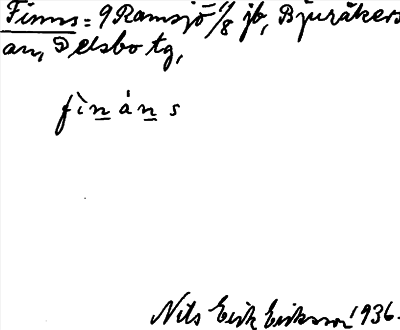 Finns = 9 Ramsjö 11/8 jb, Bjuråkers
an, Delsbo tg,
fìnáns
Nils Erik Eriksson 1936.